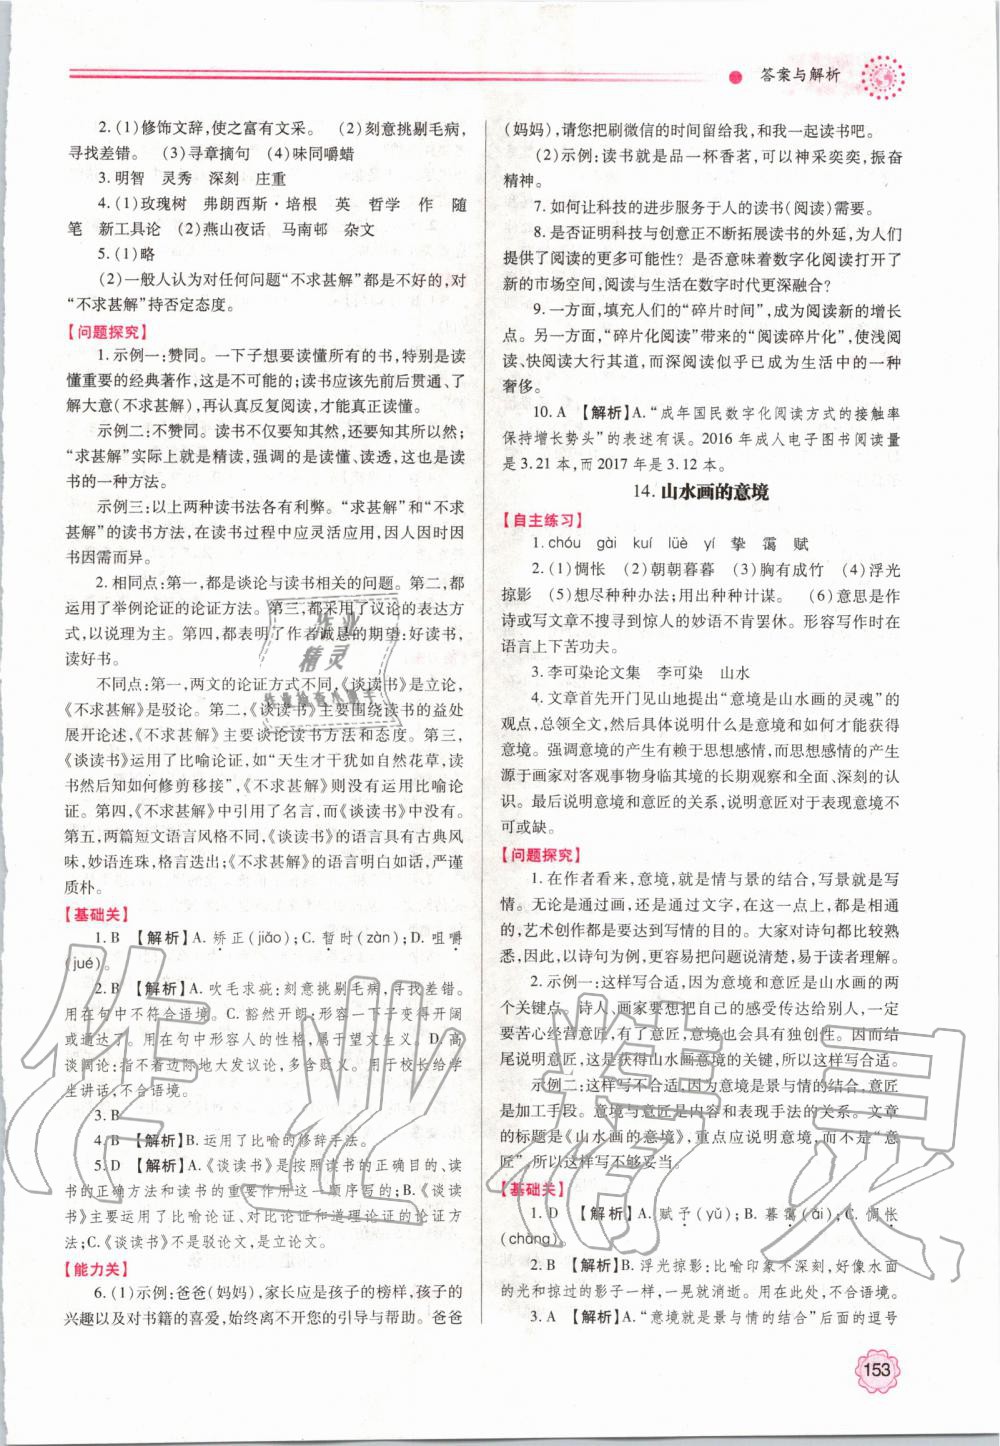 答案与解析
2.(1)修饰文辞,使之富有文采。 (2)刻意挑剔毛病,
寻找差错。 (3)寻章摘句 (4)味同嚼蜡
3.明智 灵秀 深刻 庄重
4.(1)玫瑰树 弗朗西斯·培根 英 哲学 作 随
笔 新工具论 (2)燕山夜话 马南邨 杂文
5.(1)略
(2)一般人认为对任何问题“不求甚解”都是不好的,对
“不求甚解”持否定态度。
【问题探究】
1.示例一:赞同。一下子想要读懂所有的书,特别是读
懂重要的经典著作,这是不可能的;读书应该先前后贯通、了
解大意(不求甚解),再认真反复阅读,才能真正读懂。
示例二:不赞同。读书不仅要知其然,还要知其所以然;
“求甚解”实际上就是精读,强调的是读懂、读透,这也是读
书的一种方法。
示例三:以上两种读书法各有利弊。“求甚解”和“不求
甚解”的读书方法,在读书过程中应灵活应用,因人因时因
书因需而异。
2.相同点:第一,都是谈论与读书相关的问题。第二,都
运用了举例论证的论证方法。第三,都采用了议论的表达方
式,以说理为主。第四,都表明了作者诚恳的期望:好读书,
读好书。
不同点:第一,两文的论证方式不同,《谈读书》是立论,
《不求甚解》是驳论。第二,《谈读书》主要围绕读书的益处
展开论述,《不求甚解》主要谈论读书方法和态度。第三,
《谈读书》运用了比喻论证,如“天生才干犹如自然花草,读
书然后知如何修剪移接”,《不求甚解》则没有运用比喻论
证。第四,《不求甚解》中引用了名言,而《谈读书》中没有。
第五,两篇短文语言风格不同,《谈读书》的语言具有古典风
味,妙语连珠,格言迭出;《不求甚解》的语言明白如话,严谨
质朴。
【基础关】
1.B 【解析】A.矫正(jiǎo);C.暂时(zàn);D.咀嚼
(jué)。
2.B 【解析】A.吹毛求疵:刻意挑剔毛病,寻找差错。
用在句中不符合语境。C.豁然开朗:形容一下子变得开阔
或通达了。用在句中形容人的性格,属于望文生义。D.高
谈阔论:指不着边际地大发议论,多含贬义。用于校长给学
生讲话,不合语境。
3.B
4.B 【解析】B.运用了比喻的修辞手法。
5.D 【解析】A.《谈读书》是按照读书的正确目的、读
书的正确方法和读书的重要作用这一顺序写的;B.《谈读
书》主要运用了比喻论证、对比论证和道理论证的论证方
法;C.《谈读书》不是驳论文,是立论文。
【能力关】
6.(1)示例:爸爸(妈妈),家长应是孩子的榜样,孩子的
兴趣以及对书籍的喜爱,始终离不开您的引导与帮助。爸爸
(妈妈),请您把刷微信的时间留给我,和我一起读书吧。
(2)示例:读书就是品一杯香茗,可以神采奕奕,振奋
精神。
7.如何让科技的进步服务于人的读书(阅读)需要。
8.是否证明科技与创意正不断拓展读书的外延,为人们
提供了阅读的更多可能性?是否意味着数字化阅读打开了
新的市场空间,阅读与生活在数字时代更深融合?
9.一方面,填充人们的“碎片时间”,成为阅读新的增长
点。另一方面,“碎片化阅读”带来的“阅读碎片化”,使浅阅
读、快阅读大行其道,而深阅读似乎已成为生活中的一种
奢侈。
10.A 【解析】A.“成年国民数字化阅读方式的接触率
保持增长势头”的表述有误。2016年成人电子图书阅读量
是3.21本,而2017年是3.12本。
14.山水画的意境
【自主练习】
1.chóu gài kuí lüè yí 挚 霭 赋
2.(1)惆怅 (2)朝朝暮暮 (3)胸有成竹 (4)浮光
掠影 (5)想尽种种办法;用出种种计谋。 (6)意思是作
诗或写文章不搜寻到惊人的妙语不肯罢休。形容写作时在
语言上下苦功夫。
3.李可染论文集 李可染 山水
4.文章首先开门见山地提出“意境是山水画的灵魂”的
观点,总领全文,然后具体说明什么是意境和如何才能获得
意境。强调意境的产生有赖于思想感情,思想感情的产生
源于画家对客观事物身临其境的长期观察和全面、深刻的认
识。最后说明意境和意匠的关系,说明意匠对于表现意境不
可或缺。
【问题探究】
1.在作者看来,意境,就是情与景的结合,写景就是写
情。无论是通过画,还是通过文字,在这一点上,都是相通
的,艺术创作都是要达到写情的目的。大家对诗句都比较熟
悉,因此,以诗句为例,更容易把问题说清楚,易于读者理解。
2.示例一:这样写合适,因为意境和意匠是山水画的两
个关键点。诗人、画家要想把自己的感受传达给别人,一定
要苦心经营意匠,有了意匠,意境也会具有独创性。因而结
尾说明意匠,这是获得山水画意境的关键,所以这样写合适。
示例二:这样写不合适,因为意境是景与情的结合,意匠
是加工手段。意境与意匠是内容和表现手法的关系。文章
的标题是《山水画的意境》,重点应说明意境,而不是“意
匠”,所以这样写不够妥当。
【基础关】
1.D 【解析】A.赋予(yǔ);B.暮霭(ǎi);C.惆怅
(chàng)。
2.B 【解析】B.浮光掠影:比喻印象不深刻,好像水面
的光和掠过的影子一样,一晃就消逝。用在此处,不合语境。
3.A 【解析】A.“意境就是景与情的结合”后面的逗号
153
作业精灵